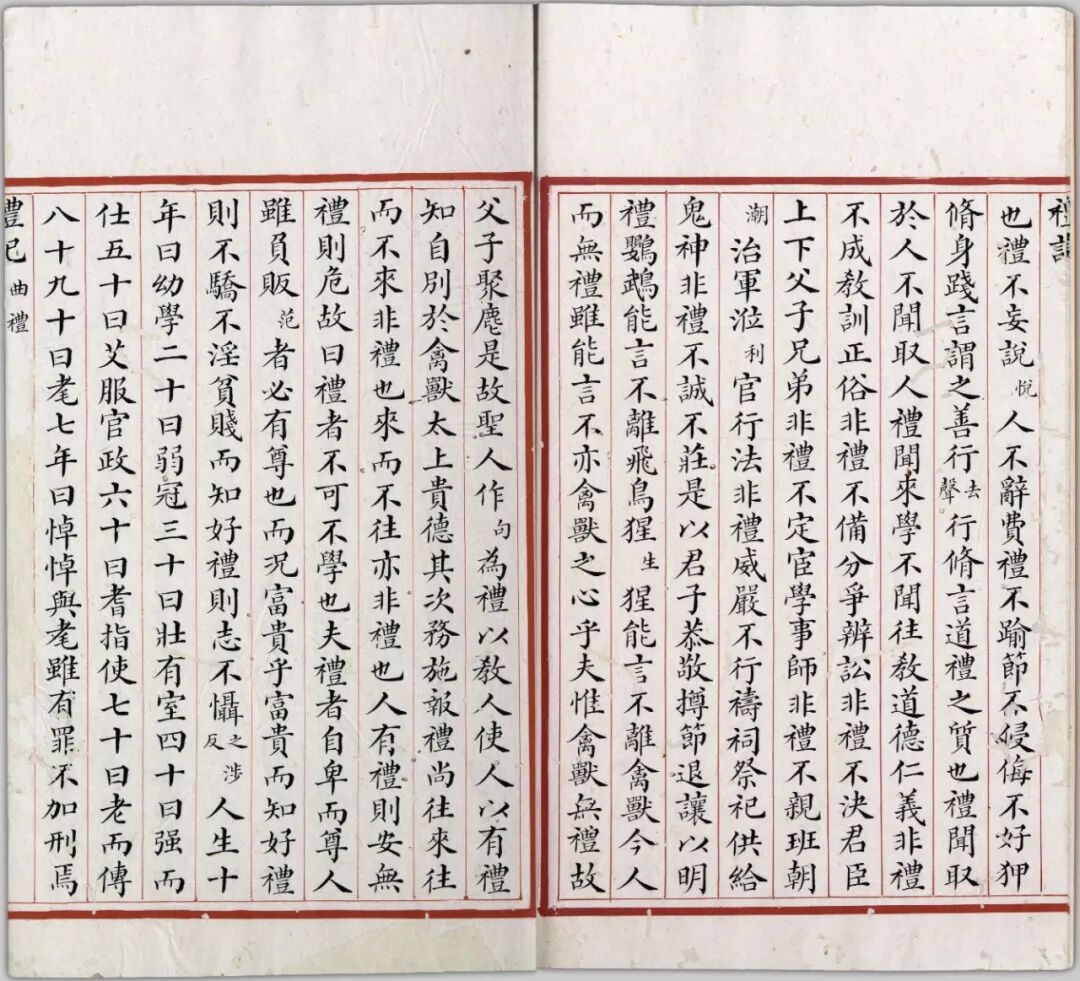 禮記
也禮不妄說悅人不辭費禮不踰節不侵侮不好狎
脩身踐言謂之善行去聲行脩言道禮之質也禮聞取
於人不聞取人禮聞來學不聞往教道德仁義非禮
不成教訓正俗非禮不備分爭辨訟非禮不決君臣
上下父子兄弟非禮不定宦學事師非禮不親班朝
潮治軍涖利官行法非禮威嚴不行禱祠祭祀供給
鬼神非禮不誠不莊是以君子恭敬撙節退讓以明
禮鸚鵡能言不離飛鳥猩生猩能言不離禽獸今人
而無禮雖能言不亦禽獸之心乎夫惟禽獸無禮故
父子聚麀是故聖人作句為禮以教人使人以有禮
知自別於禽獸太上貴德其次務施報禮尚往來往
而不來非禮也來而不往亦非禮也人有禮則安無
禮則危故曰禮者不可不學也夫禮者自卑而尊人
雖負販范者必有尊也而況富貴乎富貴而知好禮
則不驕不淫貧賤而知好禮則志不懾之涉反人生十
年曰幼學二十曰弱冠三十曰壯有室四十曰强而
仕五十曰艾服官政六十曰耆指使七十曰老而傳
八十九十曰耄七年曰悼悼與耄雖有罪不加刑焉
禮記 曲禮